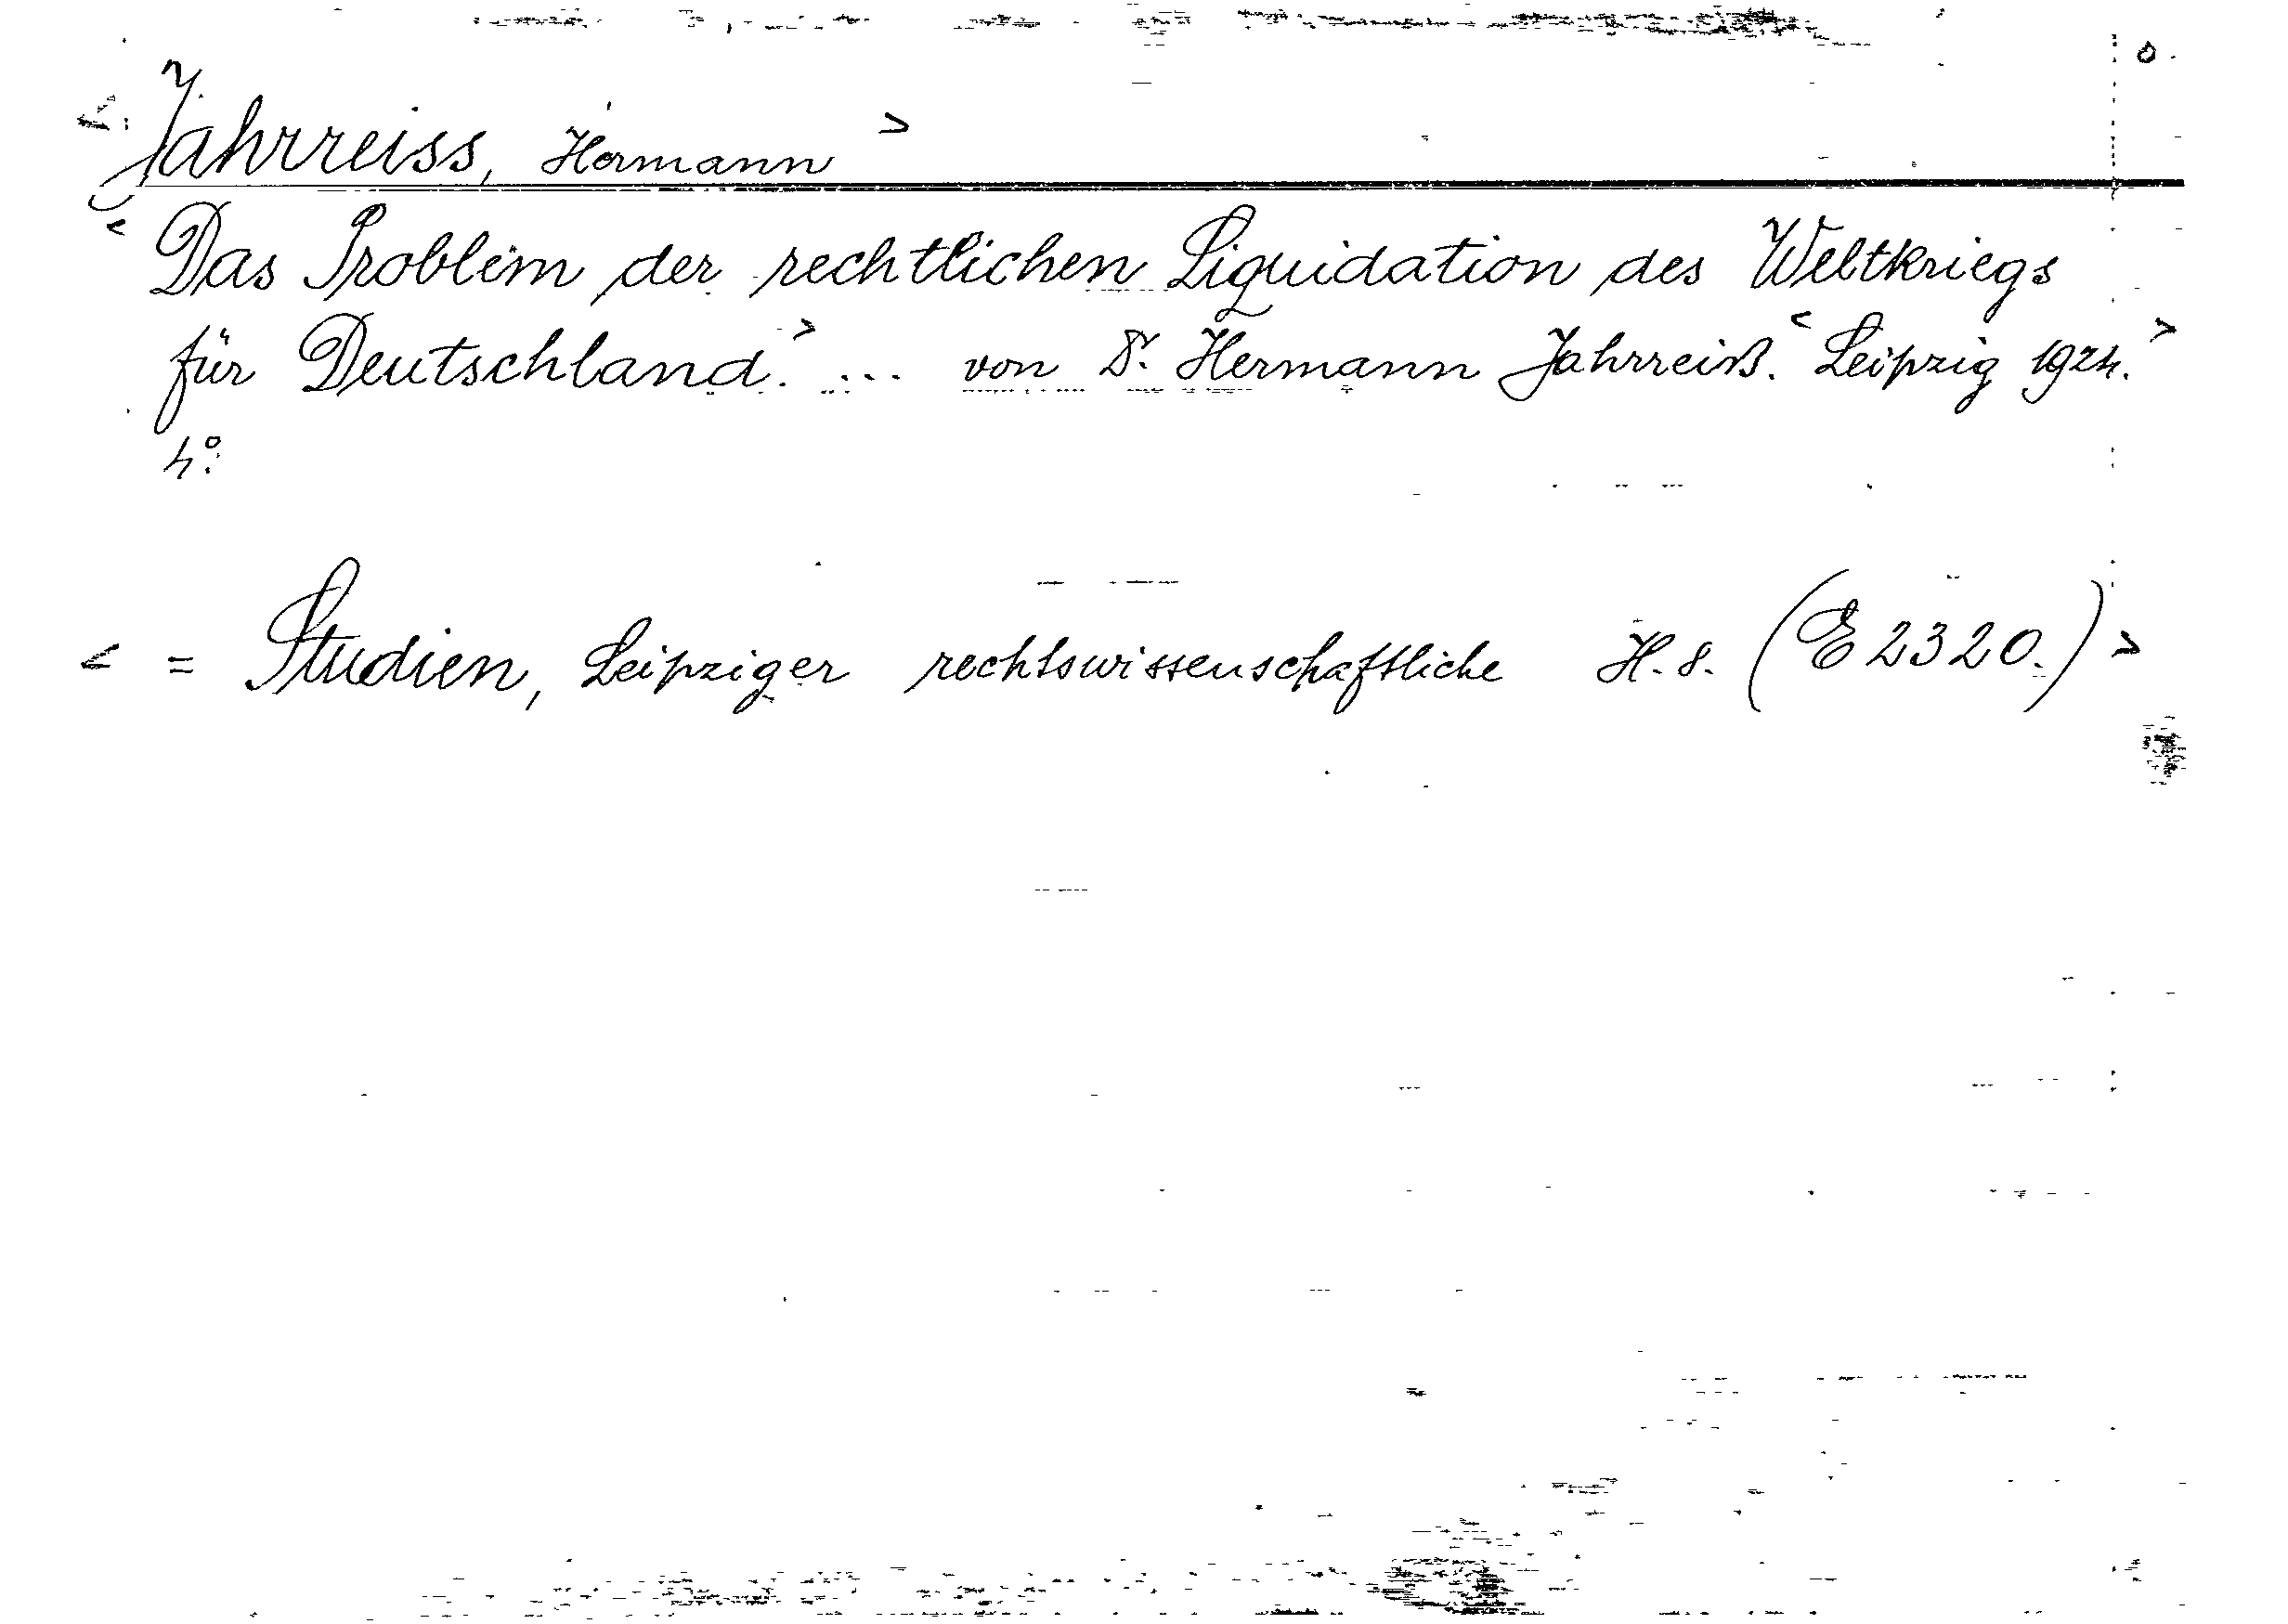 < Jahrreiss, Hermann >
< Das Problem der rechtlichen Liquidation des Weltkriegs
für Deutschland. > ... von Dr. Hermann Jahrreiß. < Leipzig 1924. >
4°.
< = Studien, Leipziger rechtswissenschaftliche H. 8. (E 2320.) >